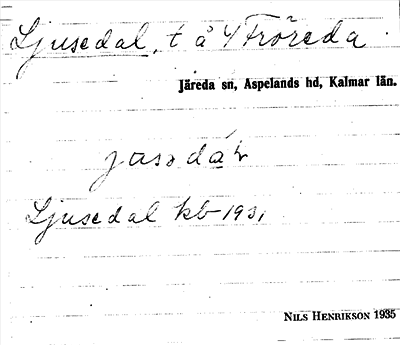 Ljusedal, t å 4 Fröreda.
Järeda sn, Aspelands hd, Kalmar län.
Ljusedal kb 1931
NILS HENRIKSON 1935